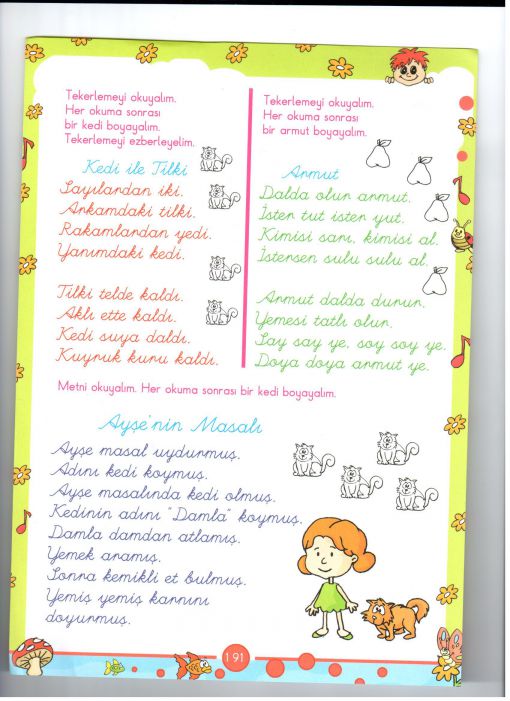 Tekerlemeyi okuyalım.
Her okuma sonrası
bir kedi boyayalım.
Tekerlemeyi ezberleyelim.
Kedi ile Tilki
Sayılardan iki.
Arkamdaki tilki.
Rakamlardan yedi.
Yanımdaki kedi.
Tilki telde kaldı.
Aklı ette kaldı.
Kedi suya daldı.
Kuyruk kuru kaldı.
Tekerlemeyi okuyalım.
Her okuma sonrası
bir armut boyayalım.
Armut
Dalda olur armut.
İster tut ister yut.
Kimisi sarı, kimisi al.
İstersen sulu sulu al.
Armut dalda durur.
Yemesi tatlı olur.
Say say ye, soy soy ye.
Doya doya armut ye.
Metni okuyalım. Her okuma sonrası bir kedi boyayalım.
Ayşe'nin Masalı
Ayşe masal uydurmuş.
Adını kedi koymuş.
Ayşe masalında kedi olmuş.
Kedinin adını "Damla" koymuş.
Damla damdan atlamış.
Yemek aramış.
Sonra kemikli et bulmuş.
Yemiş yemiş karnını
doyurmuş.
191